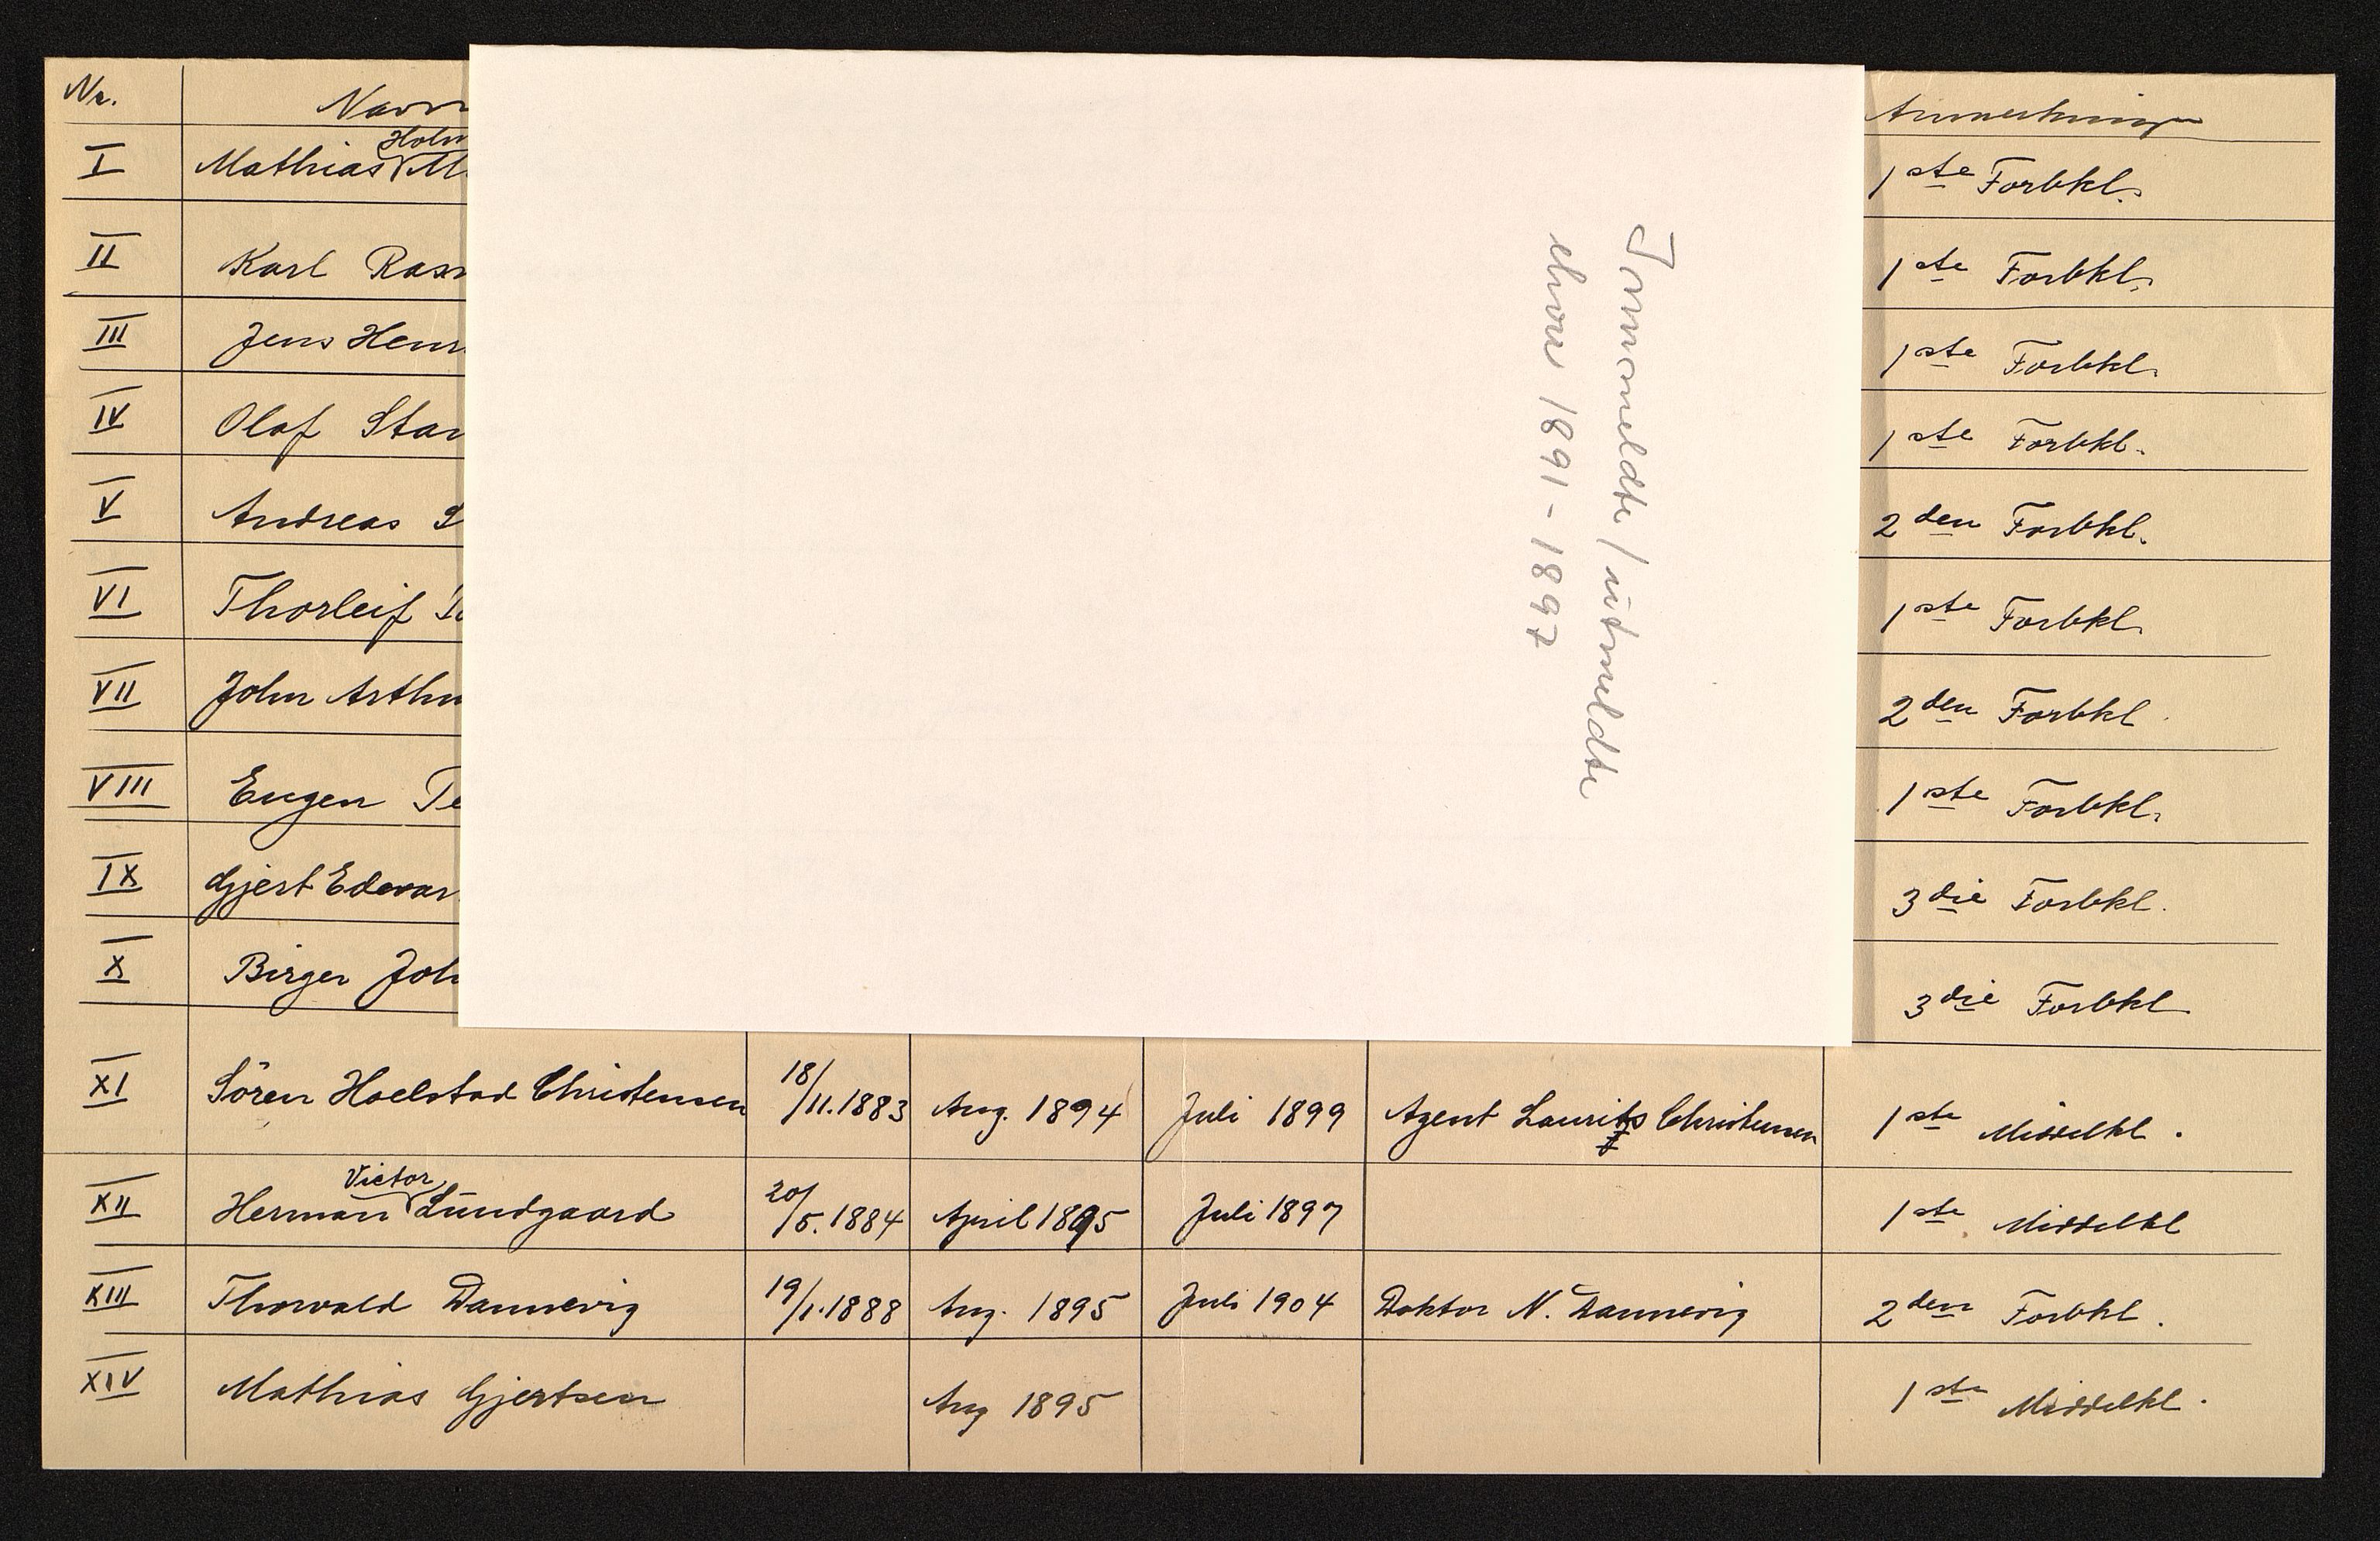 Nr. Navn Anmerkning
Holm
I Mathias M 1ste Forbkl.
II Karl Rasm 1ste Forbkl.
III Jens Henr 1ste Forbkl.
IV Olaf Star 1ste Forbkl.
V Andreas S 2den Forbkl.
VI Thorleif 1ste Forbkl.
VII John Arthu 2den Forbkl.
VIII Eugen Te 1ste Forbkl.
IX Gjert Edevar 3die Forbkl.
X Birger Joh 3die Forbkl
XI Sören Hoelstad Christensen 18/11.1883 Aug. 1894 Juli 1899 Agent Laurits Christensen 1ste Middelkl.
Victor
XII Herman Lundgaard 20/5.1884 April 1895 Juli 1897 1ste Middelkl
XIII Thorvald Dannevig 19/1.1888 Aug. 1895 Juli 1904 Doktor N. Dannevig 2den Forbkl.
XIV Mathias Gjertsen Aug 1895 1ste Middelkl.
Innmeldte / utmeldte
elever 1891-1897